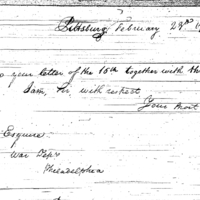 Pittsburg, February 23rd
your letter of the 15th together with the
Sam, Sir, with respect
Your Most
Esquire
War Dept
Philadelphia